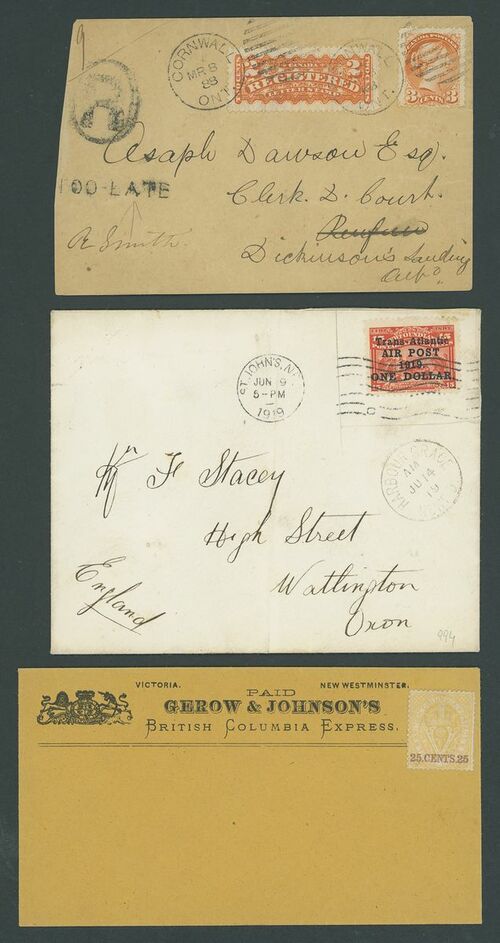 9
CORNWALL
MR 8
88
ONT.
CANADA
2 REGISTERED 2
LETTER STAMP
CANADA POSTAGE
3 CENTS 3
R
TOO-LATE
Asaph Dawson Esq.
Clerk. D. Court.
Renfrew
Dickinson's Landing
R Smith.
ST. JOHN'S, N.F.
JUN 9
5-PM
1919
Trans-Atlantic
AIR POST
1919
ONE DOLLAR.
15
HARBOUR GRACE
AM
JU 14
19
Mr F Stacey
High Street
Watlington
Oxon
England
994
VICTORIA. NEW WESTMINSTER.
PAID
GEROW & JOHNSON'S
BRITISH COLUMBIA EXPRESS.
25.CENTS.25